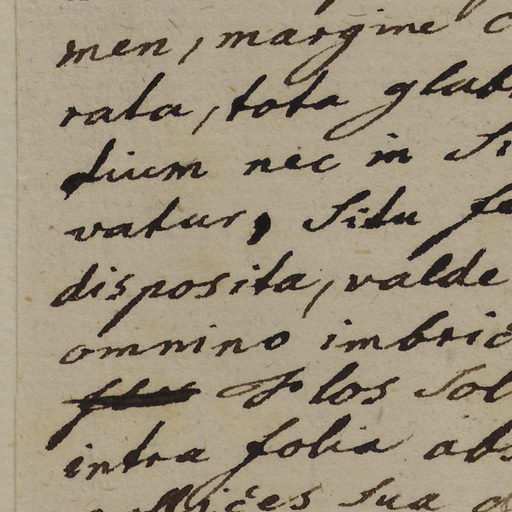 men, margine
rata, tota glab
dium nec in Si
vatur, Situ fe
disposita, valde
omnino imbric
Flos Sol
intra folia abs
sua